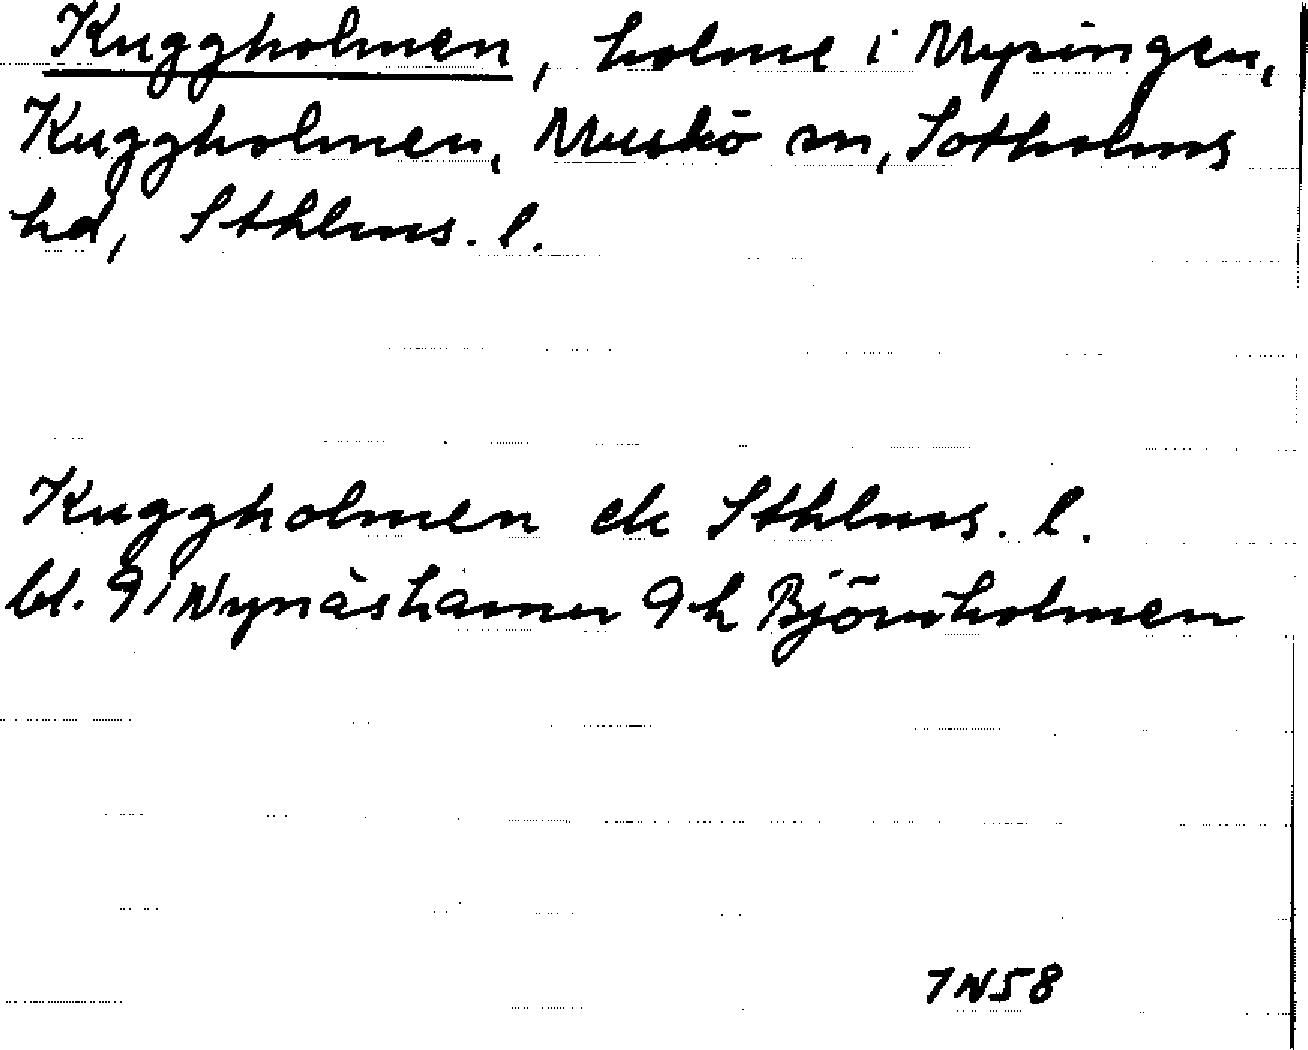 Kuggholmen, holme i Mysingen,
Kuggholmen, Muskö sn, Sotholms
hd, Sthlms. l.
Kuggholmen ek Sthlms. l.
bl. 9 i Nynäshamn 9 h Björnholmen
7N58